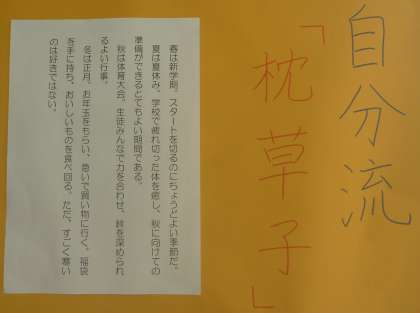 自分流
「枕草子」
春は新学期。スタートを切るのにちょうどよい季節だ。
夏は夏休み。学校で疲れ切った体を癒し、秋に向けての
準備ができるとてもよい期間である。
秋は体育大会。生徒みんなで力を合わせ、絆を深められ
るよい行事。
冬は正月。お年玉をもらい、急いで買い物に行く。福袋
を手に持ち、おいしいものを食べ回る。ただ、すごく寒い
のは好きではない。